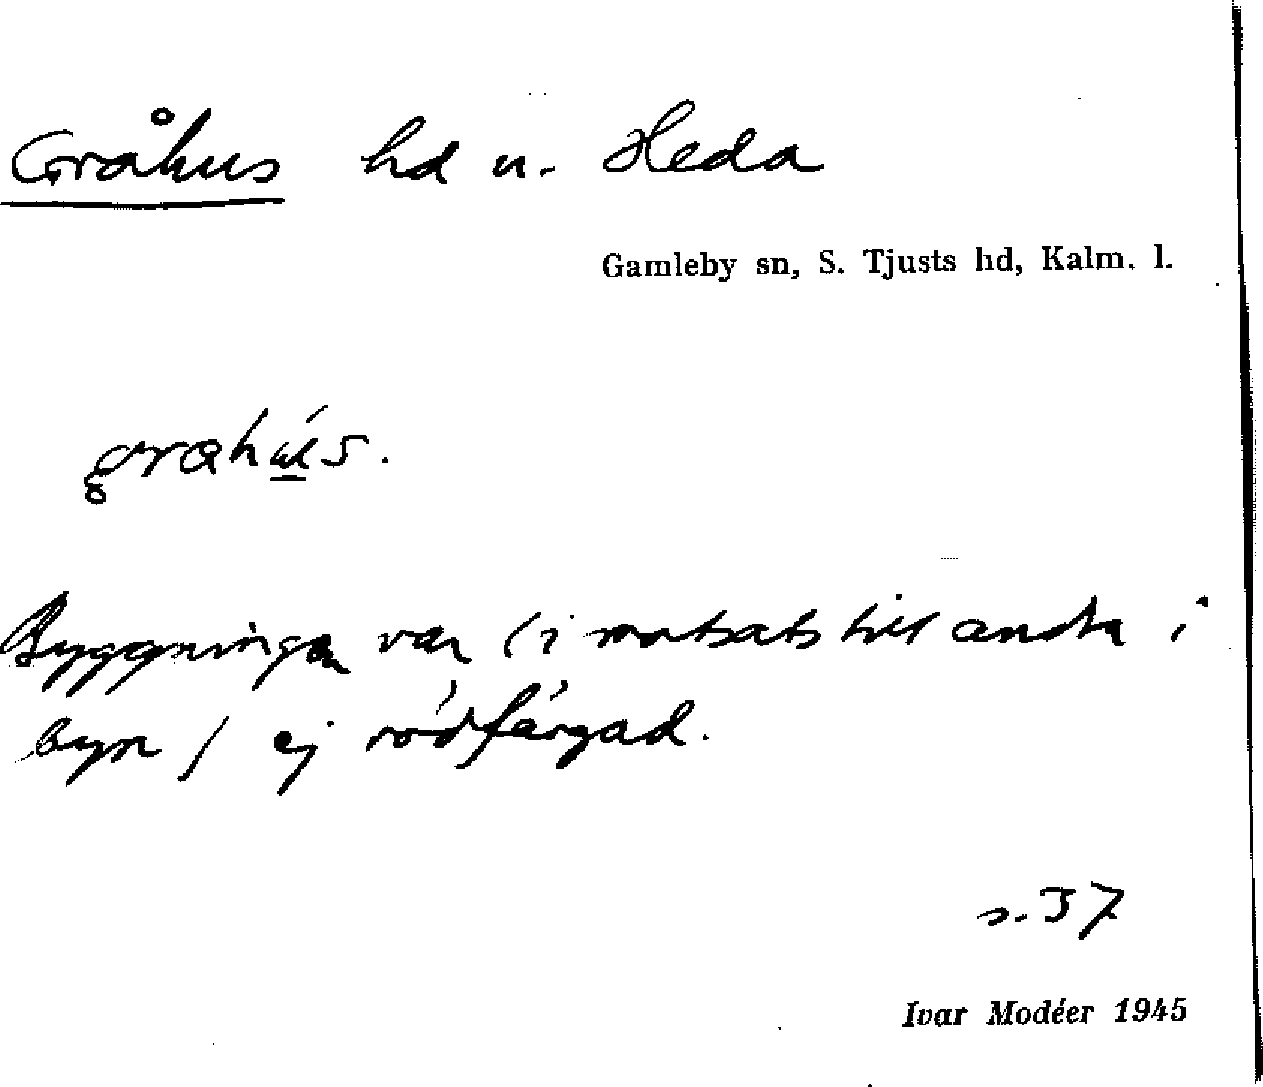 Gråhus hd u. Heda
Gamleby sn, S. Tjusts hd, Kalm. l.
Byggningen var (i motsats till andra i
byn) ej rödfärgad.
s. 37
Ivar Modéer 1945